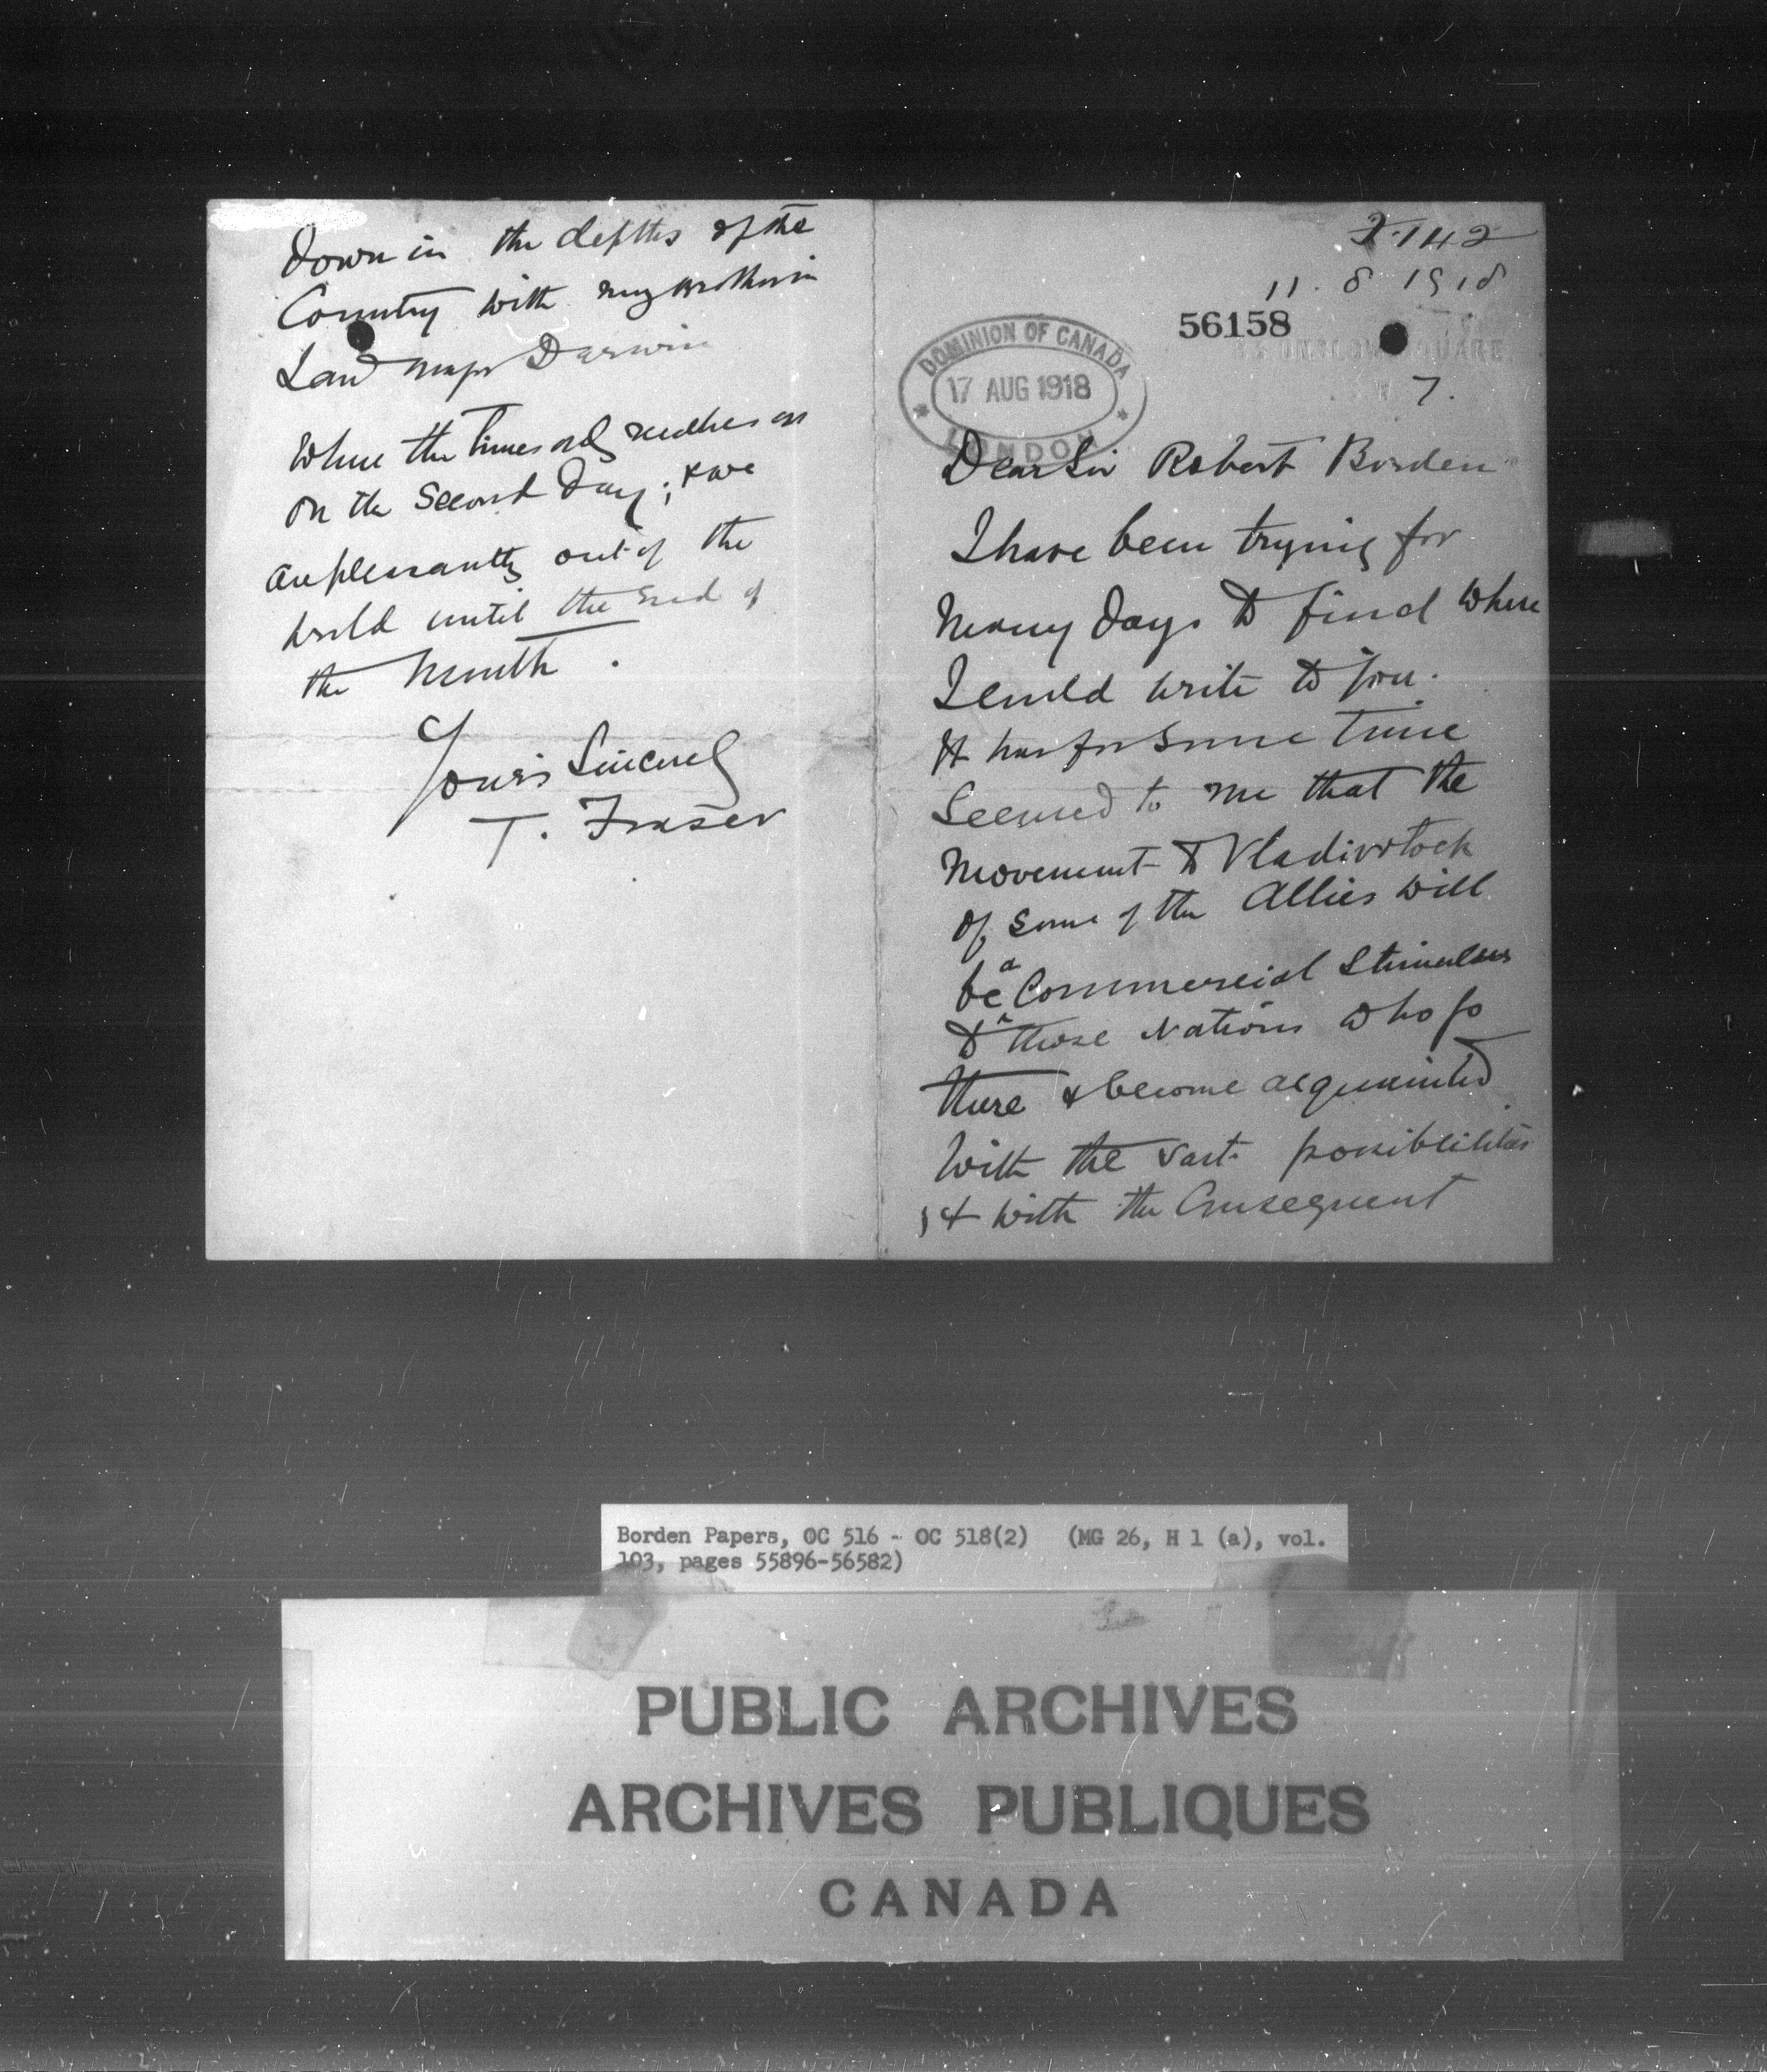 Down in the depths of the
Country with my brother in
Law Major Darwin
Where the Times only reaches us
on the Second Day; & we
are pleasantly out of the
world until the End of
the Month.
Yours Sincerely
T. Fraser
2-142
11. 8 1918
56158
ONSLOW SQUARE
7.
DOMINION OF CANADA
17 AUG 1918
LONDON
Dear Sir Robert Borden
I have been trying for
Many Days to find where
I could write to you.
It has for some time
Seemed to me that the
Movement to Vladivostock
of some of the Allies will
be a Commercial Stimulus
to those Nations who go
there & become acquainted
with the vast possibilities
; & with the Consequent
Borden Papers, OC 516 - OC 518(2) (MG 26, H 1 (a), vol.
103, pages 55896-56582)
PUBLIC ARCHIVES
ARCHIVES PUBLIQUES
CANADA